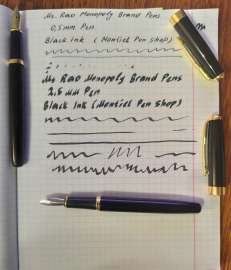 Mr. Rao Monopoly Brand Pens
0,5mm Pen
Black Ink (Montiel Pen Shop)
Mr. Rao Monopoly Brand Pens
2,5 mm Pen
Black Ink (Montiel Pen Shop)